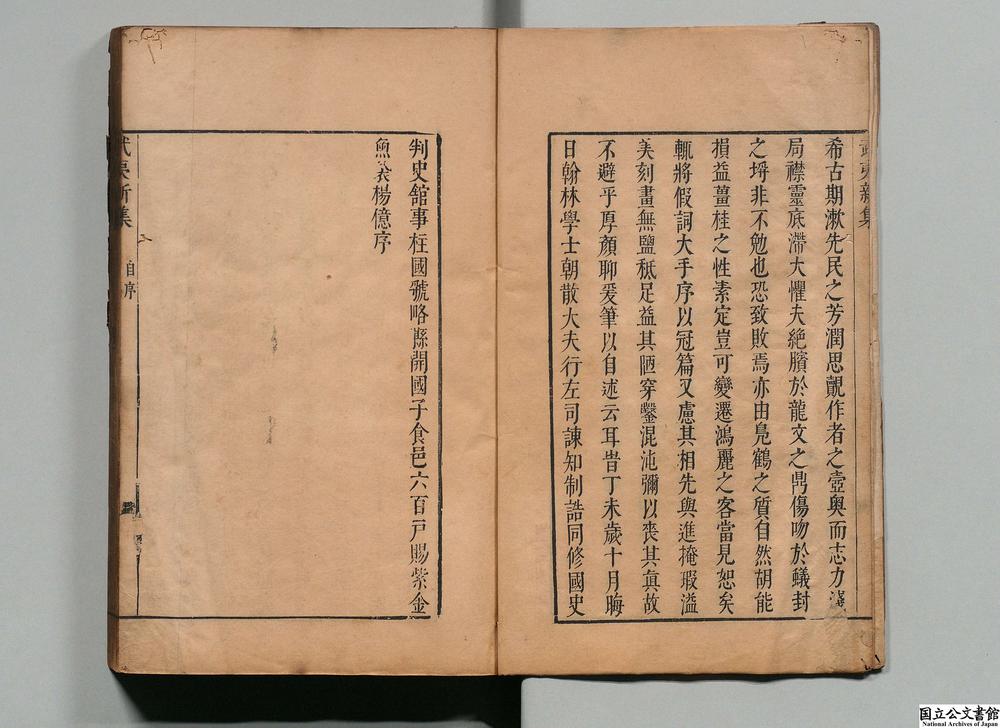 武夷新集
希古期漱先民之芳潤思覿作者之壼奧而志力
局襟靈底滯大懼夫絶臏於龍文之鼎傷吻於蟻封
之垺非不勉也恐致敗焉亦由鳧鶴之質自然胡能
損益薑桂之性素定豈可變遷鴻麗之客當見恕矣
輒將假詞大手序以冠篇又慮其相先與進掩瑕溢
美刻畫無鹽秪足益其陋穿鑿混沌彌以喪其眞故
不避乎厚顏聊爰筆以自述云耳昔丁未歲十月晦
日翰林學士朝散大夫行左司諫知制誥同修國史
判史舘事柱國虢略縣開國子食邑六百戸賜紫金
魚袋楊億序
武夷新集
自序
国立公文書館
National Archives of Japan